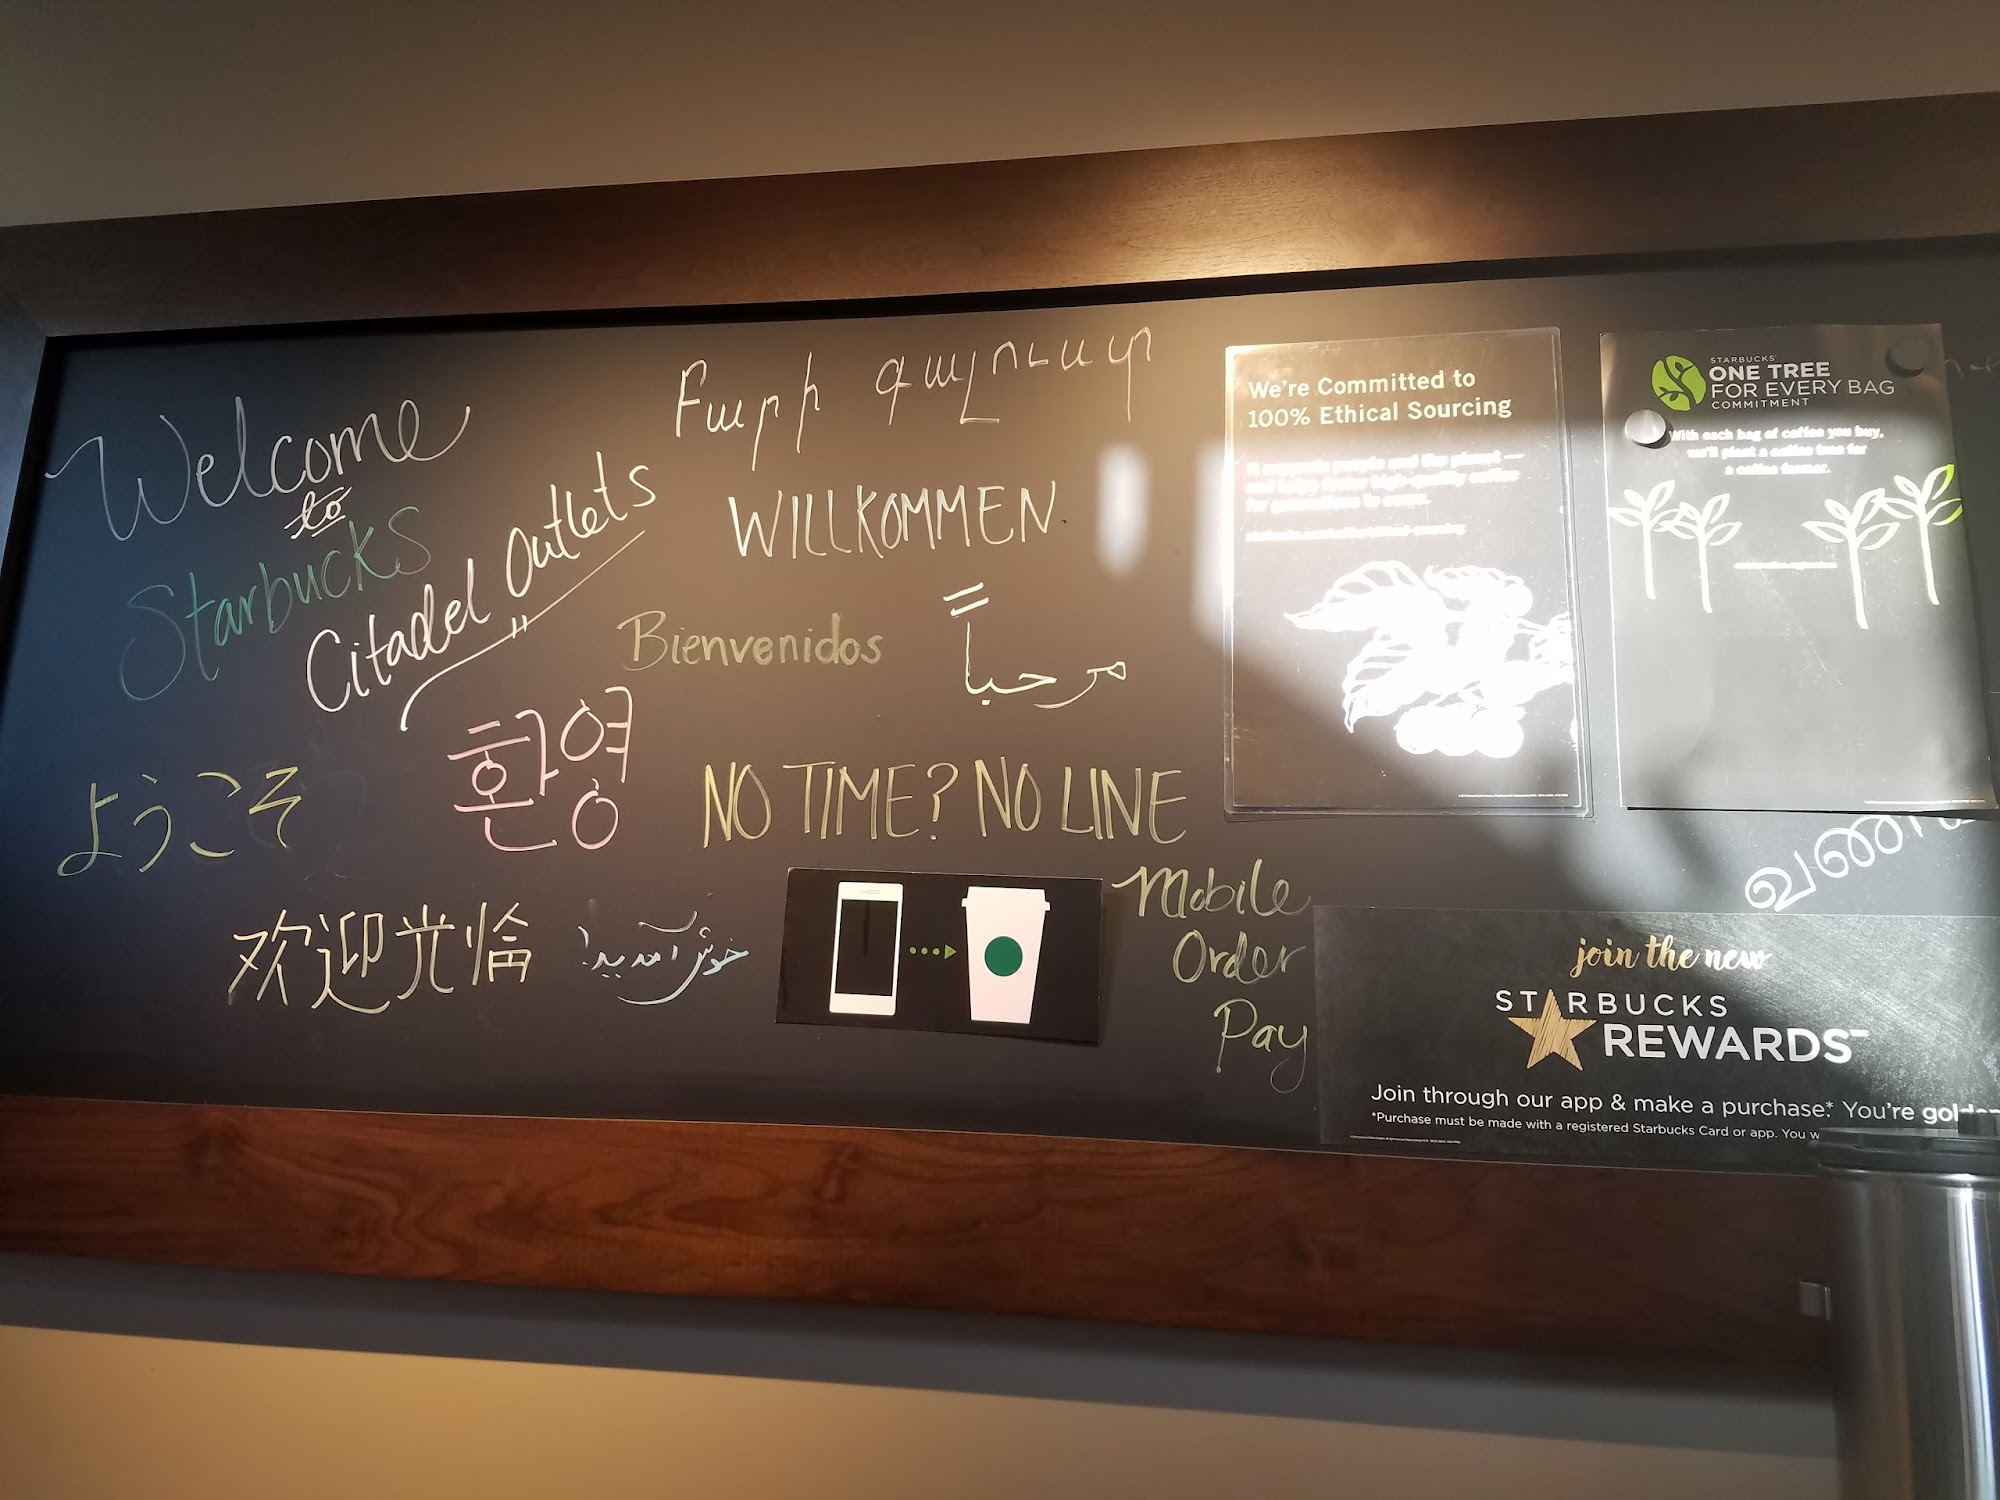 Welcome
to
Starbucks
Citadel Outlets
Բարի գալուստ
WILLKOMMEN
Bienvenidos
مرحباً
ようこそ
환영
NO TIME? NO LINE
欢迎光惀
خوش آمدید!
Mobile
Order
Pay
We're Committed to
100% Ethical Sourcing
STARBUCKS
ONE TREE
FOR EVERY BAG
COMMITMENT
With each bag of coffee you buy,
we'll plant a coffee tree for
a coffee farmer.
join the new
STARBUCKS
REWARDS
Join through our app & make a purchase.* You're golden
*Purchase must be made with a registered Starbucks Card or app. You w